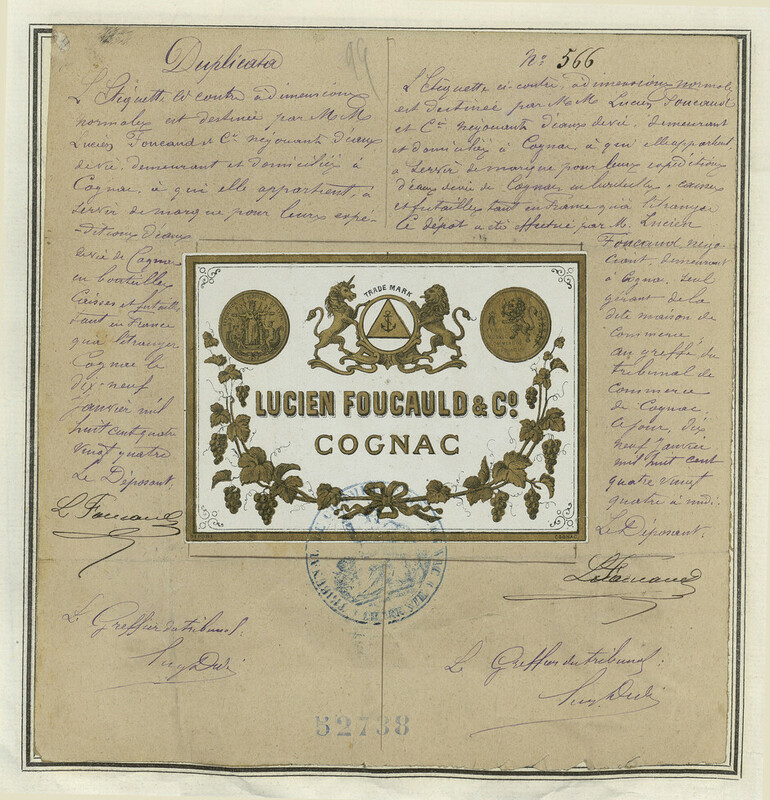 Duplicata
L'Etiquette ci contre à dimensions
normales est destinée par M M
Lucien Foucauld et Cie négociants d'eaux
de vie, demeurant et domiciliés à
Cognac, à qui elle appartient, à
servir de marque pour leurs expé-
ditions d'eaux
de vie de Cognac
en bouteilles
Caisses et futailles,
tant en France
qu'à l'étranger
Cognac le
dix-neuf
janvier mil
huit cent quatre
vingt quatre
Le Déposant.
L. Foucauld
Le Greffier du tribunal:
No: 566
L'Etiquette ci-contre, à dimensions normales
est destinée par M M Lucien Foucauld
et Cie négociants d'eaux de vie, demeurant
et domiciliés à Cognac, à qui elle appartient,
à servir de marque pour leurs expéditions
d'eaux de vie de Cognac en bouteilles, caisses
et futailles tant en France qu'à l'étranger
Le dépôt a été effectué par M. Lucien
Foucauld négo-
ciant, demeurant
à Cognac, seul
gérant de la
dite maison de
Commerce,
au greffe du
tribunal de
Commerce
de Cognac.
Ce jour, dix
neuf Janvier
mil huit cent
quatre vingt
quatre à midi.
Le Déposant.
L. Foucauld
Le Greffier du tribunal:
TRADE MARK
LUCIEN FOUCAULD & Co.
COGNAC
52738